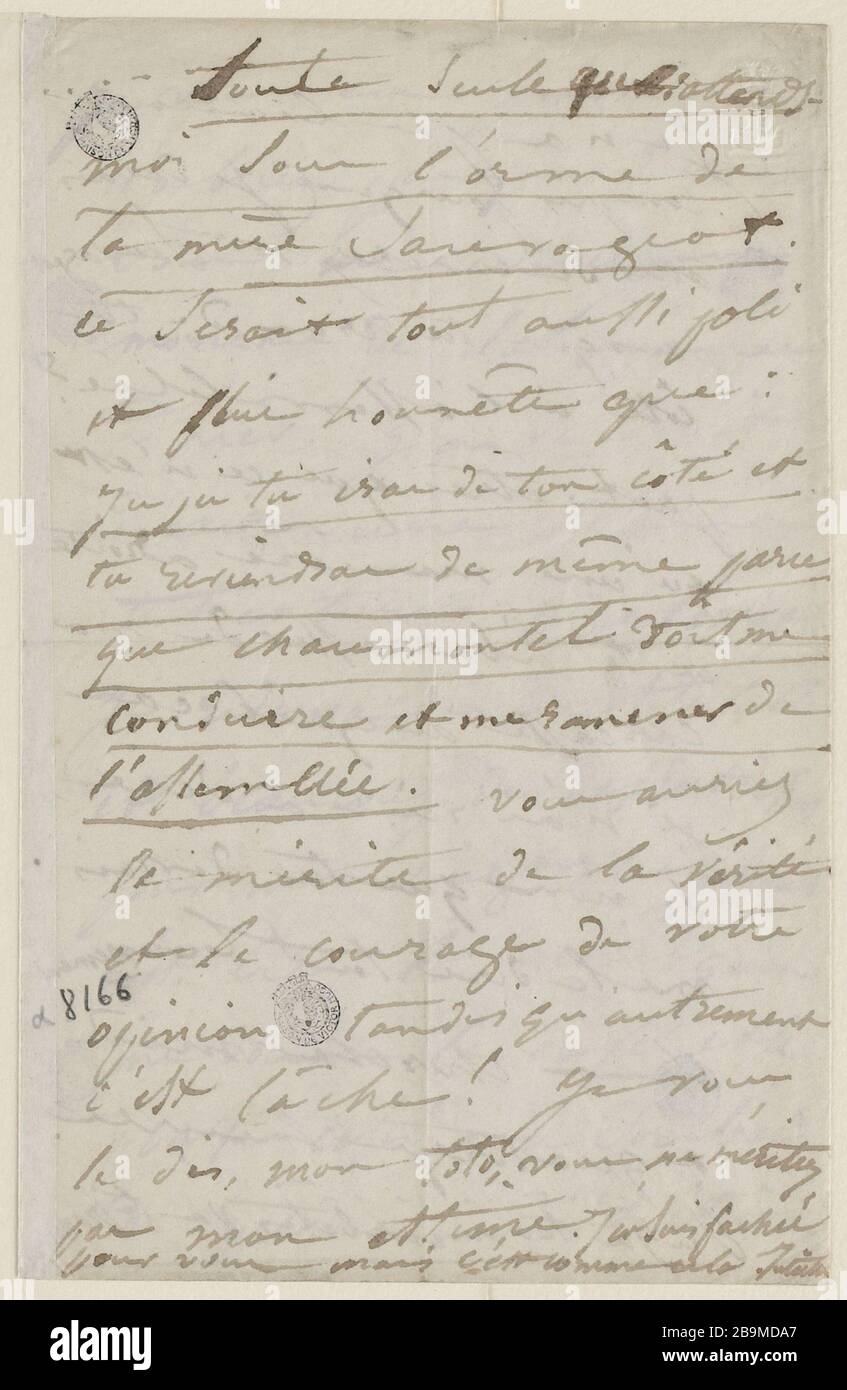 toute seule attends-
moi sous l'orme de
la mère Sauvageot.
ce serait tout aussi joli
et plus honnête que :
tu iras de ton côté et
tu reviendras de même parce
que chaumontel doit me
conduire et me ramener de
l'assemblée. vous auriez
le mérite de la vérité
et le courage de votre
opinion tandis qu'autrement
c'est lâche ! Je vous
le dis, mon toto, vous ne méritez
pas mon estime. J'en suis fachée
pour vous mais c'est comme cela
α 8166
alamy
Image ID: 2B9MDA7
www.alamy.com